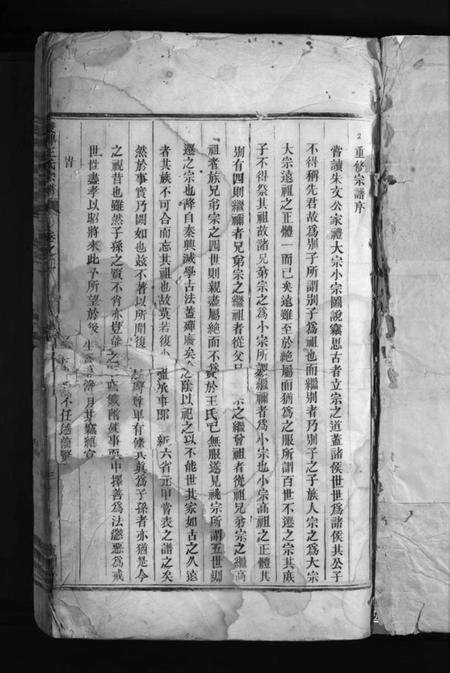 重修宗譜序
嘗讀朱文公家禮大宗小宗圖說竊思古者立宗之道蓋諸侯世世為諸侯其公子
不得稱先君故為別子所謂別子為祖也而繼別者乃別子之子族人宗之為大宗
大宗遠祖之正體一而已矣遠雖至於絶屬而猶為之服所謂百世不遷之宗其庶
子不得祭其祖故諸兄弟宗之為小宗所謂繼禰者為小宗也小宗高祖之正體其
別有四則繼禰者兄弟宗之繼祖者從父兄 宗之繼曾祖者從祖兄弟宗之繼高
祖者族兄弟宗之四世則親盡屬絶而不 於王氏已無服遂見 宗所謂五世則
遷之宗也降自秦興滅學古法蓋 廢矣 之陰以祀之以不能世其家如古之久遠
者其族不可合而忘其祖也故莫若復 承事郎 新六省元甲昔表之譜之矣
然於事實乃闕如也茲不著以所聞復 尊卑有倫 為子孫者亦猶是今
之視昔也雖然子孫之賢不肖亦豈 之 事 中擇善為法 惡為戒
世世盡孝以昭將來此予所望於後 生 濟月其
肯 不任
2